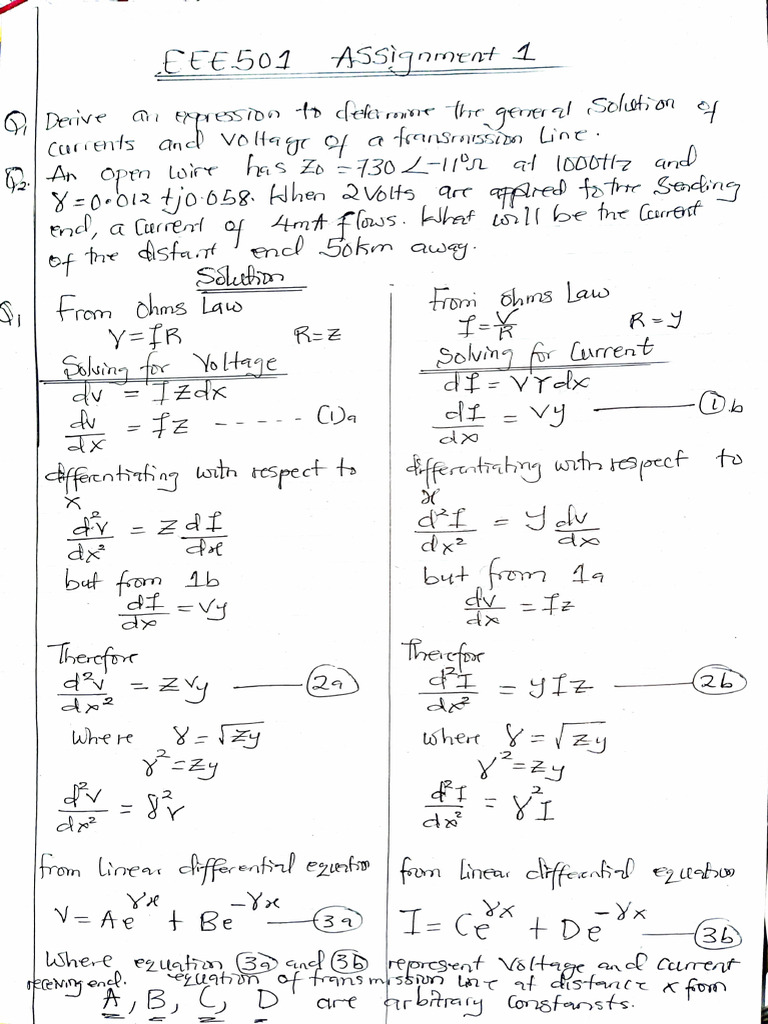 EEE501 ASSignment 1
Q1 Derive an expression to determine the general Solution of
currents and voltage of a transmission Line.
Q2. An open wire has Zo = 730∠-11°Ω at 1000Hz and
γ = 0.012 + j0.058. When 2 Volts are applied to the Sending
end, a current of 4mA flows. What will be the current
of the distant end 50km away.
Solution
Q1 From ohms Law
V = IR R = Z
Solving for Voltage
dv = IZdx
dv/dx = IZ ----- (1)a
differentiating with respect to
x
d²v/dx² = Z dI/dx
but from 1b
dI/dx = Vy
Therefore
d²v/dx² = ZVy —— (2a)
Where γ = √Zy
γ² = Zy
d²v/dx² = γ²v
from linear differential equation
V = Ae^γx + Be^-γx —— (3a)
From ohms Law
I = V/R R = y
Solving for Current
dI = VYdx
dI/dx = Vy —— (1).b
differentiating with respect to
x
d²I/dx² = y dv/dx
but from 1a
dv/dx = Iz
Therefore
d²I/dx² = yIz —— (2b)
where γ = √Zy
γ² = Zy
d²I/dx² = γ²I
from linear differential equation
I = Ce^γx + De^-γx —— (3b)
Where equation (3a) and (3b) represent Voltage and current
equation of transmission line at distance x from
receiving end.
A, B, C, D are arbitrary constansts.